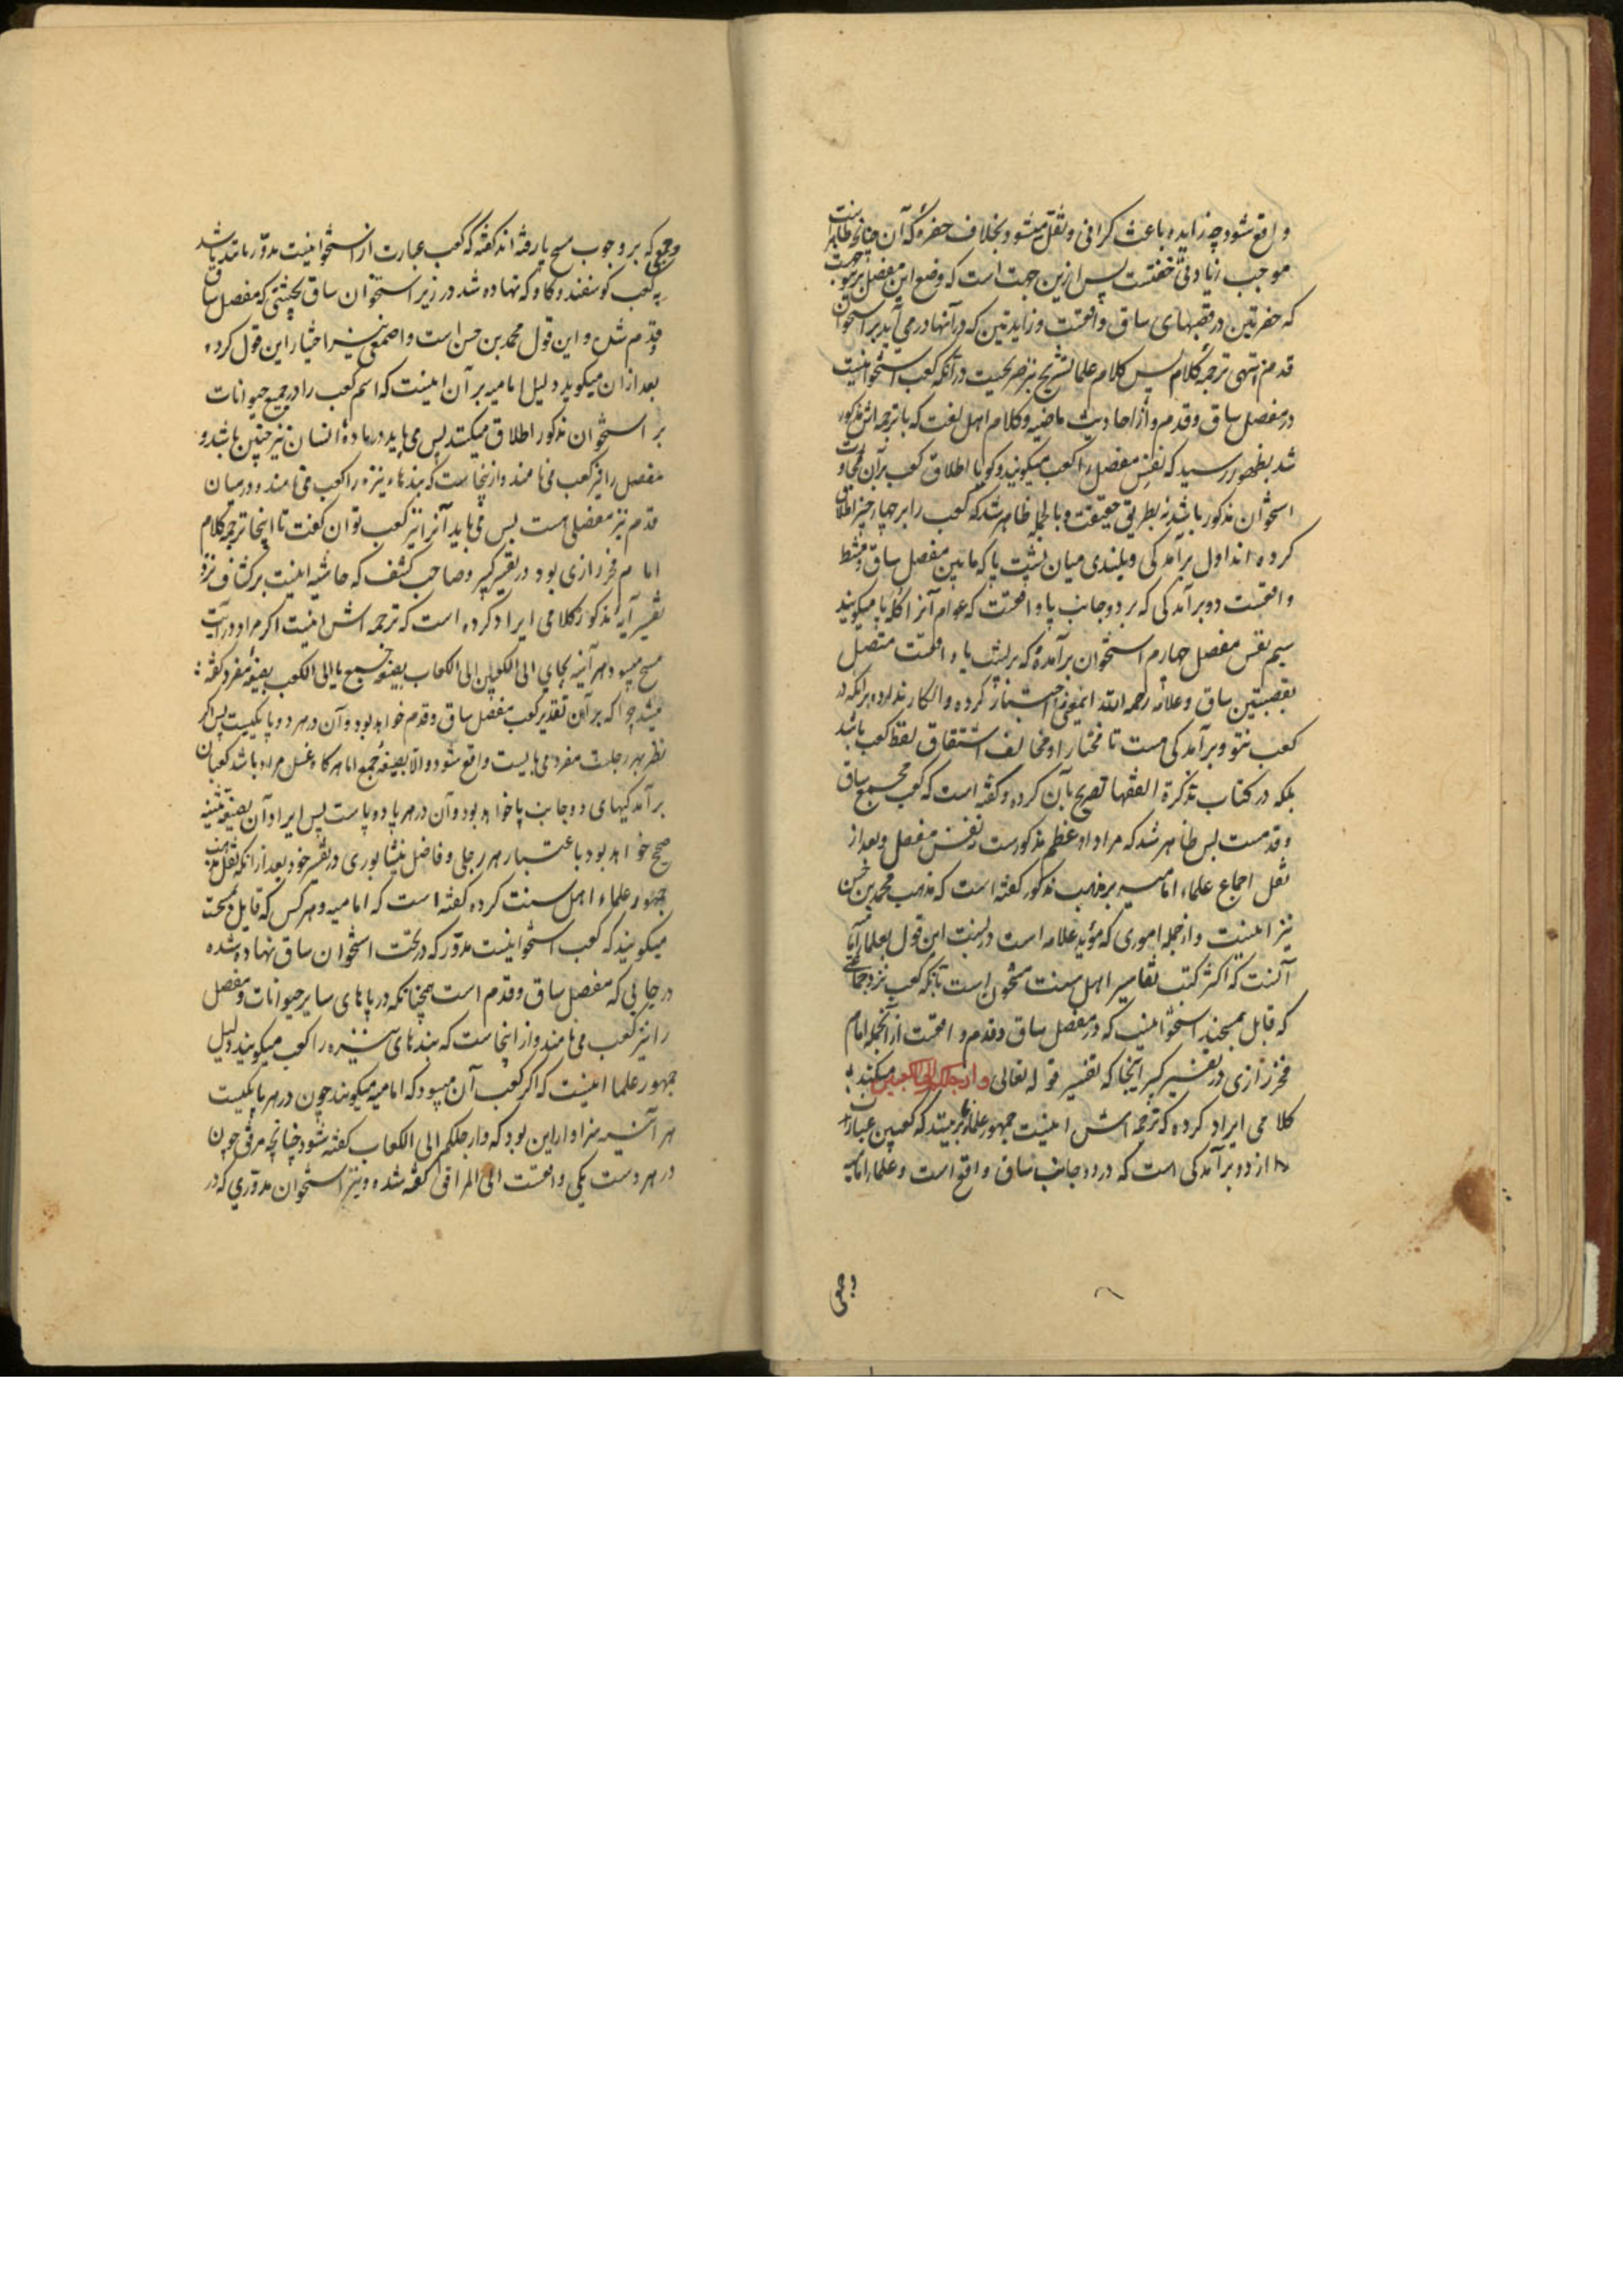 واقع شود چه زایده باعث کرانی و ثقل میشود بخلاف حفره که آن چنانچه ظاهرست
موجب زیادتی خفتست پس ازین جهت است که وضع این مفصل برین
که حفرتین در قصبهای ساق واقعست و زایدتین که در آنها درمی آید بر استخوان
قدم انتهی ترجمه کلام پس کلام علما تشریح نیز صریحست در آنکه کعب استخوانیست
در مفصل ساق و قدم و از احادیث ماضیه و کلام اهل لغت که با ترجمه اش مذکور
شد بظهور رسید که نفس مفصل را کعب میکویند و کویا اطلاق کعب بر آن
استخوان مذکور باشد نه بطریق حقیقت و بالجمله ظاهر شد که کعب را بر چهار چیز اطلاق
کرده اند اول برآمدکی و بلندی میان پشت پا که مابین مفصل ساق و مشط
واقعست دو برآمدکی که بر دو جانب پا واقعست که عوام آنرا میکویند
سیم نفس مفصل چهارم استخوان برآمدۀ که بر پشت پا واقعست متصل
بقصبتین ساق و علامه رحمه الله اختیار کرده و انکار ندارد بر آنکه در
کعب نتو و برآمدکی هست تا مختار او مخالف اشتقاق لفظ کعب باشد
بلکه در کتاب تذکرة الفقها تصریح بآن کرده و کفته است که کعب مجمع ساق
و قدمست پس ظاهر شد که مراد او عظم مذکورست نفس مفصل و بعد از
نقل اجماع علماء امامیه بر مذهب مذکور کفته است که مذهب محمد بن حسن
نیز اینست و از جمله اموری که مؤید علامه است در نسبت این قول بعلما
آنست که اکثر کتب تفاسیر اهل سنت مشحون است بآنکه کعب نزد جماعتی
که قایل بمسحند استخوانیست که در مفصل ساق و قدم واقعست از آنجمله امام
فخر رازی در تفسیر کبیر آنجا که تفسیر قوله تعالی وارجلکم الی الکعبین میکند
کلامی ایراد کرده که ترجمه اش اینست جمهور علما برینند که کعبین عبارت
از دو برآمدکی است که در دو جانب ساق واقع است و علماء امامیه
وجمعی
وجمعی که بر وجوب مسح پا رفته اند کفته که کعب عبارت از استخوانیست مدور مانند باشد
به کعب کوسفند و کاو که نهاده شد در زیر استخوان ساق بحیثیتی که مفصل ساق
و قدم شد و این قول محمد بن حسن است و اصمعی نیز اختیار این قول کرده
بعد از ان میکوید دلیل امامیه بر آن اینست که اسم کعب را در جمیع حیوانات
بر استخوان مذکور اطلاق میکنند پس می باید در مادۀ انسان نیز چنین باشد و
مفصل را نیز کعب می نامند و ازینجاست که بندهاء نیزه را کعب می نامند و در میان
قدم نیز مفصلی است پس می باید آنرا نیز کعب توان کفت تا اینجا ترجمه کلام
امام فخر رازی بود در تفسیر کبیر و صاحب کشف که حاشیه اینست بر کشاف نزد
تفسیر آیه مذکور کلامی ایراد کرده است که ترجمه اش اینست اکر مراد در آیت
مسح میبود هر آینه بجای الی الکعبین الی الکعاب بصیغه جمع یا الی الکعب بصیغه مفرد کفته
میشد چرا که بر آن تقدیر کعب مفصل ساق و قدم خواهد بود و آن در هر دو پا یکیست پس اکر
نظر بهر رجلست مفرد می بایست واقع شود و الا بصیغه جمع اما هرکاه غسل مراد باشد کعبان
برآمدکیهای دو جانب پا خواهد بود و آن در هر پا دو پاست پس ایراد آن بصیغه تثنیه
صحیح خواهد بود باعتبار هر رجلی و فاضل نیشابوری در تفسیر خود بعد از آنکه نقل مذهب
جمهور علماء اهل سنت کرده کفته است که امامیه و هر کس که قایل بمسحست
میکویند که کعب استخوانیست مدور که در تحت استخوان ساق نهاده شده
در جایی که مفصل ساق و قدم است همچنانکه در پاهای سایر حیوانات و مفصل
را نیز کعب می نامند و از اینجاست که بندهای نیزه را کعب میکویند دلیل
جمهور علما اینست که اکر کعب آن میبود که امامیه میکویند چون در هر پا یکیست
هر آینه سزاوار این بود که وارجلکم الی الکعاب کفته شود چنانچه مرفق چون
در هر دست یکی واقعست الی المرافق کفته شده و نیز استخوان مدوری که در